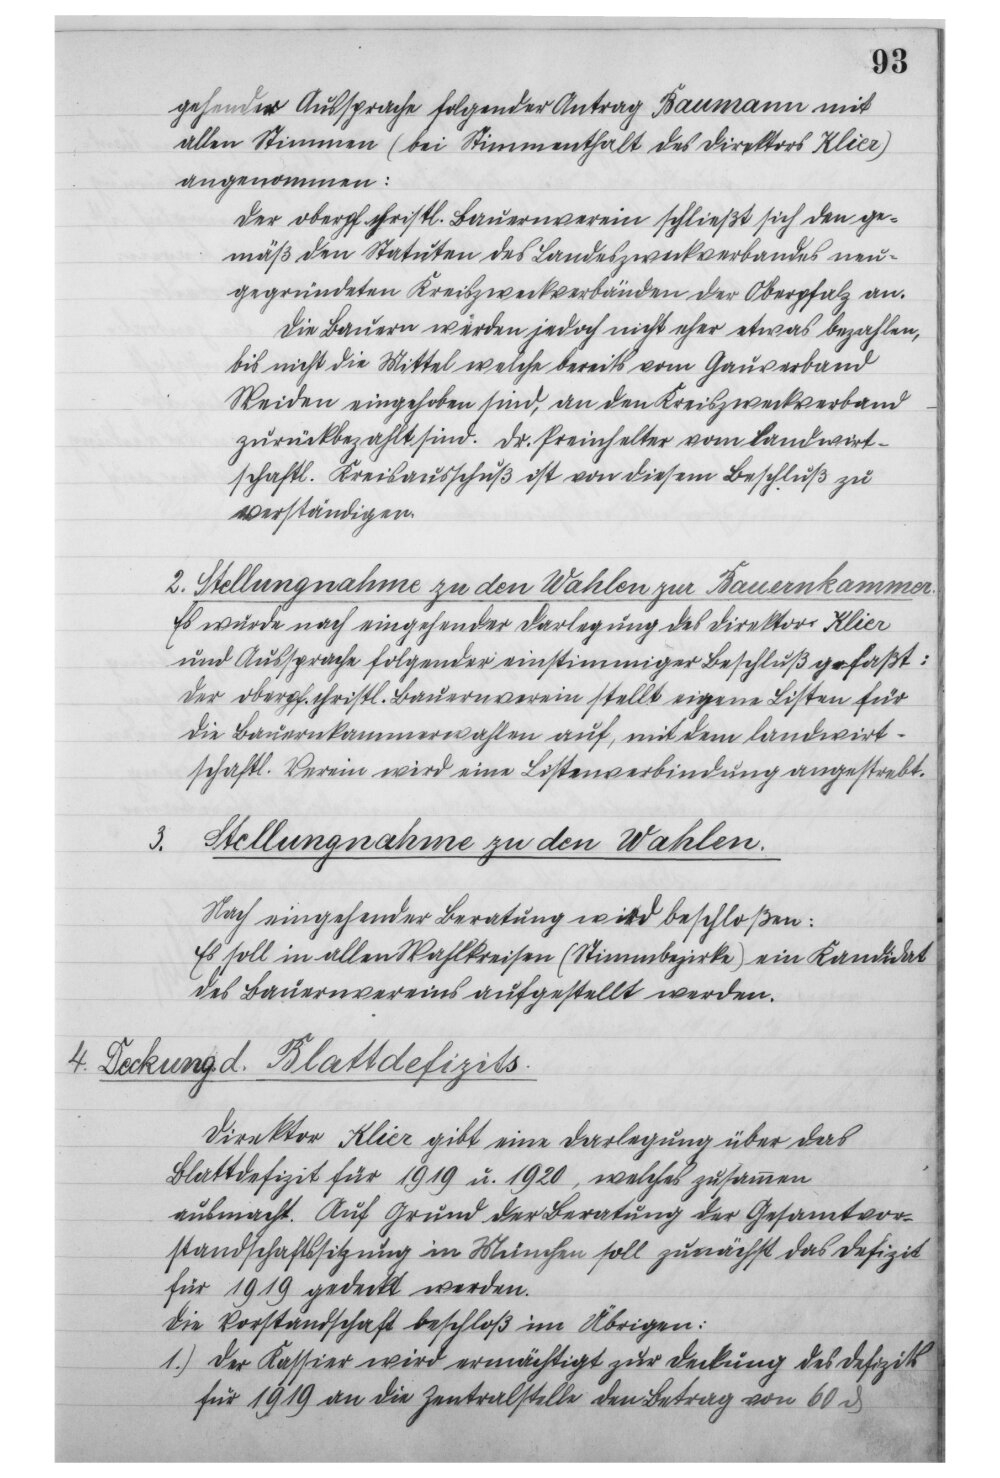 93
gehender Aussprache folgender Antrag Baumann mit
allen Stimmen (bei Stimmenthalt des Direktors Klier)
angenommen:
Der oberpf. christl. Bauernverein schließt sich den ge-
mäß den Statuten des Landeszweckverbandes neu-
gegründeten Kreiszweckverbänden der Oberpfalz an.
Die Bauern würden jedoch nicht eher etwas bezahlen,
bis nicht die Mittel welche bereits vom Gauverband
Weiden eingehoben sind, an den Kreiszweckverband
zurückbezahlt sind. Dr. Preinhelter vom Landwirt-
schaftl. Kreisausschuß ist von diesem Beschluß zu
verständigen.
2. Stellungnahme zu den Wahlen zur Bauernkammer.
Es wurde nach eingehender Darlegung des Direktors Klier
und Aussprache folgender einstimmiger Beschluß gefaßt:
Der oberpf. christl. Bauernverein stellt eigene Listen für
die Bauernkammerwahlen auf, mit dem landwirt-
schaftl. Verein wird eine Listenverbindung angestrebt.
3. Stellungnahme zu den Wahlen.
Nach eingehender Beratung wird beschloßen:
Es soll in allen Wahlkreisen (Stimmbezirke) ein Kandidat
des Bauernvereins aufgestellt werden.
4. Deckung d. Blattdefizits.
Direktor Klier gibt eine Darlegung über das
Blattdefizit für 1919 u. 1920, welches zusam̅en
ausmacht. Auf Grund der Beratung der Gesamtvor-
standschaftssitzung in München soll zunächst das Defizit
für 1919 gedeckt werden.
Die Vorstandschaft beschloß im Übrigen:
1.) Der Kassier wird ermächtigt zur Deckung des Defizits
für 1919 an die Zentralstelle den Betrag von 60 ₰